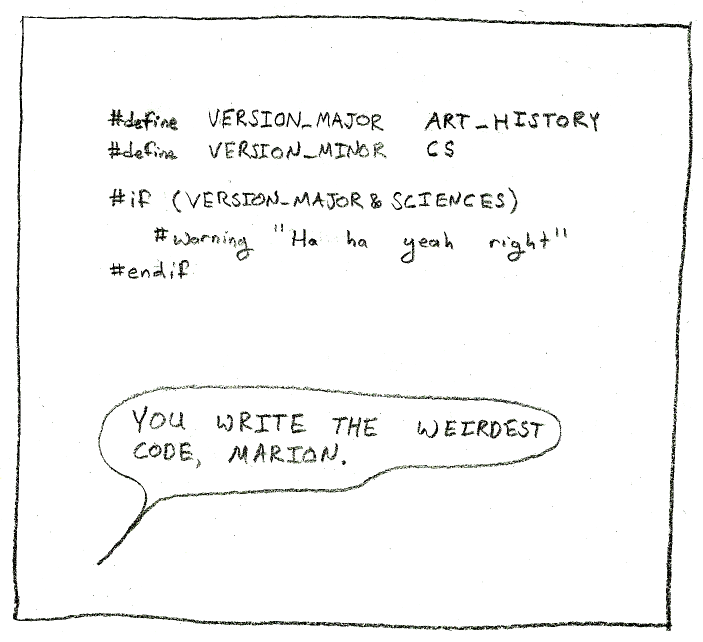 #define VERSION_MAJOR ART_HISTORY
#define VERSION_MINOR CS
#if (VERSION_MAJOR & SCIENCES)
#warning "Ha ha yeah right"
#endif
YOU WRITE THE WEIRDEST
CODE, MARION.